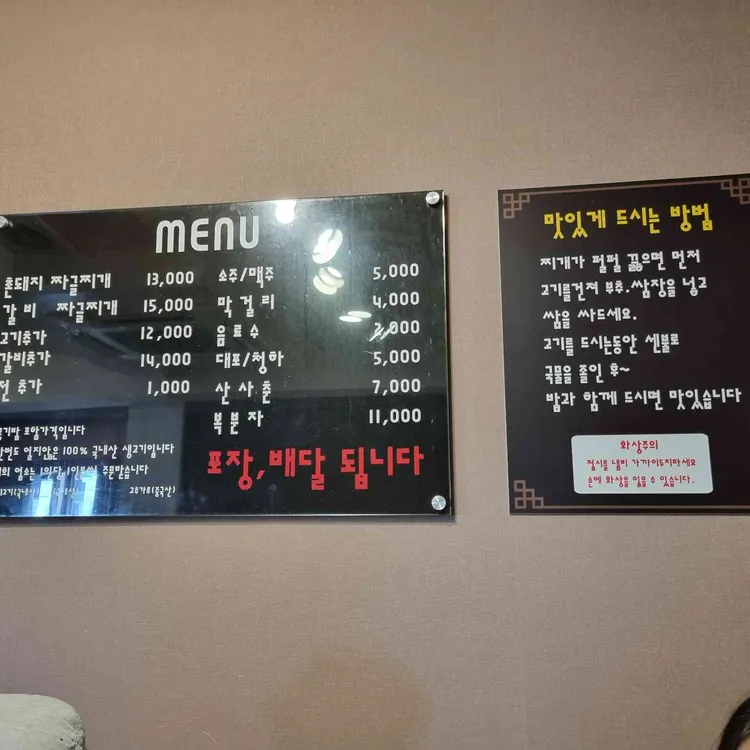 MENU
혼돼지 짜글찌개 13,000
갈비 짜글찌개 15,000
고기추가 12,000
갈비추가 14,000
전 추가 1,000
소주/맥주 5,000
막걸리 4,000
음료수 2,000
대포/청하 5,000
산사춘 7,000
복분자 11,000
공기밥 포함가격입니다
한번도 얼지않은 100% 국내산 생고기입니다
업소는 1인당 1인분씩 주문받습니다
고기(국내산) 고춧가루(중국산)
포장,배달 됩니다
맛있게 드시는 방법
찌개가 펄펄 끓으면 먼저
고기를건져 부추.쌈장을 넣고
쌈을 싸드세요.
고기를 드시는동안 센불로
국물을 졸인 후~
밥과 함께 드시면 맛있습니다
화상주의
접시를 냄비 가까이두지마세요
손에 화상을 입을 수 있습니다.